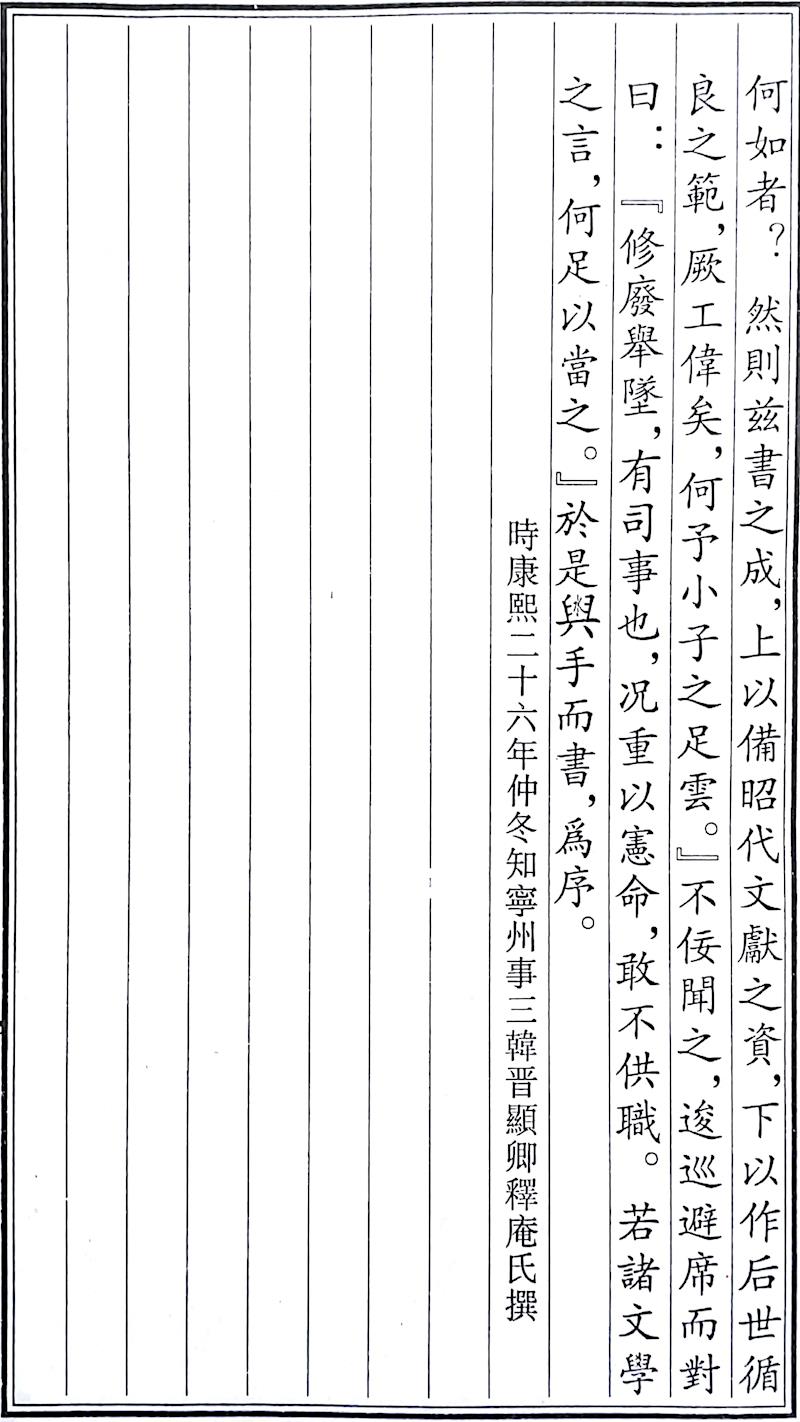 何如者？然則兹書之成，上以備昭代文獻之資，下以作后世循
良之範，厥工偉矣，何予小子之足雲。』不佞聞之，逡巡避席而對
曰：『修廢舉墜，有司事也，况重以憲命，敢不供職。若諸文學
之言，何足以當之。』於是盥手而書，爲序。
時康熙二十六年仲冬知寧州事三韓晋顯卿釋庵氏撰